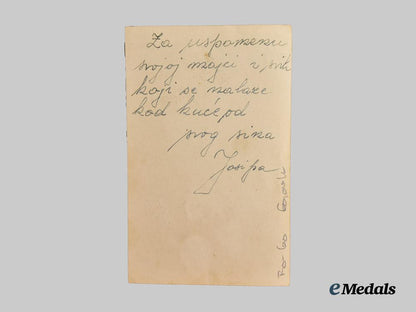 Za uspomenu
svojoj majci i svih
koji se nalaze
kod kuće od
svog sina
Josipa
eMedals